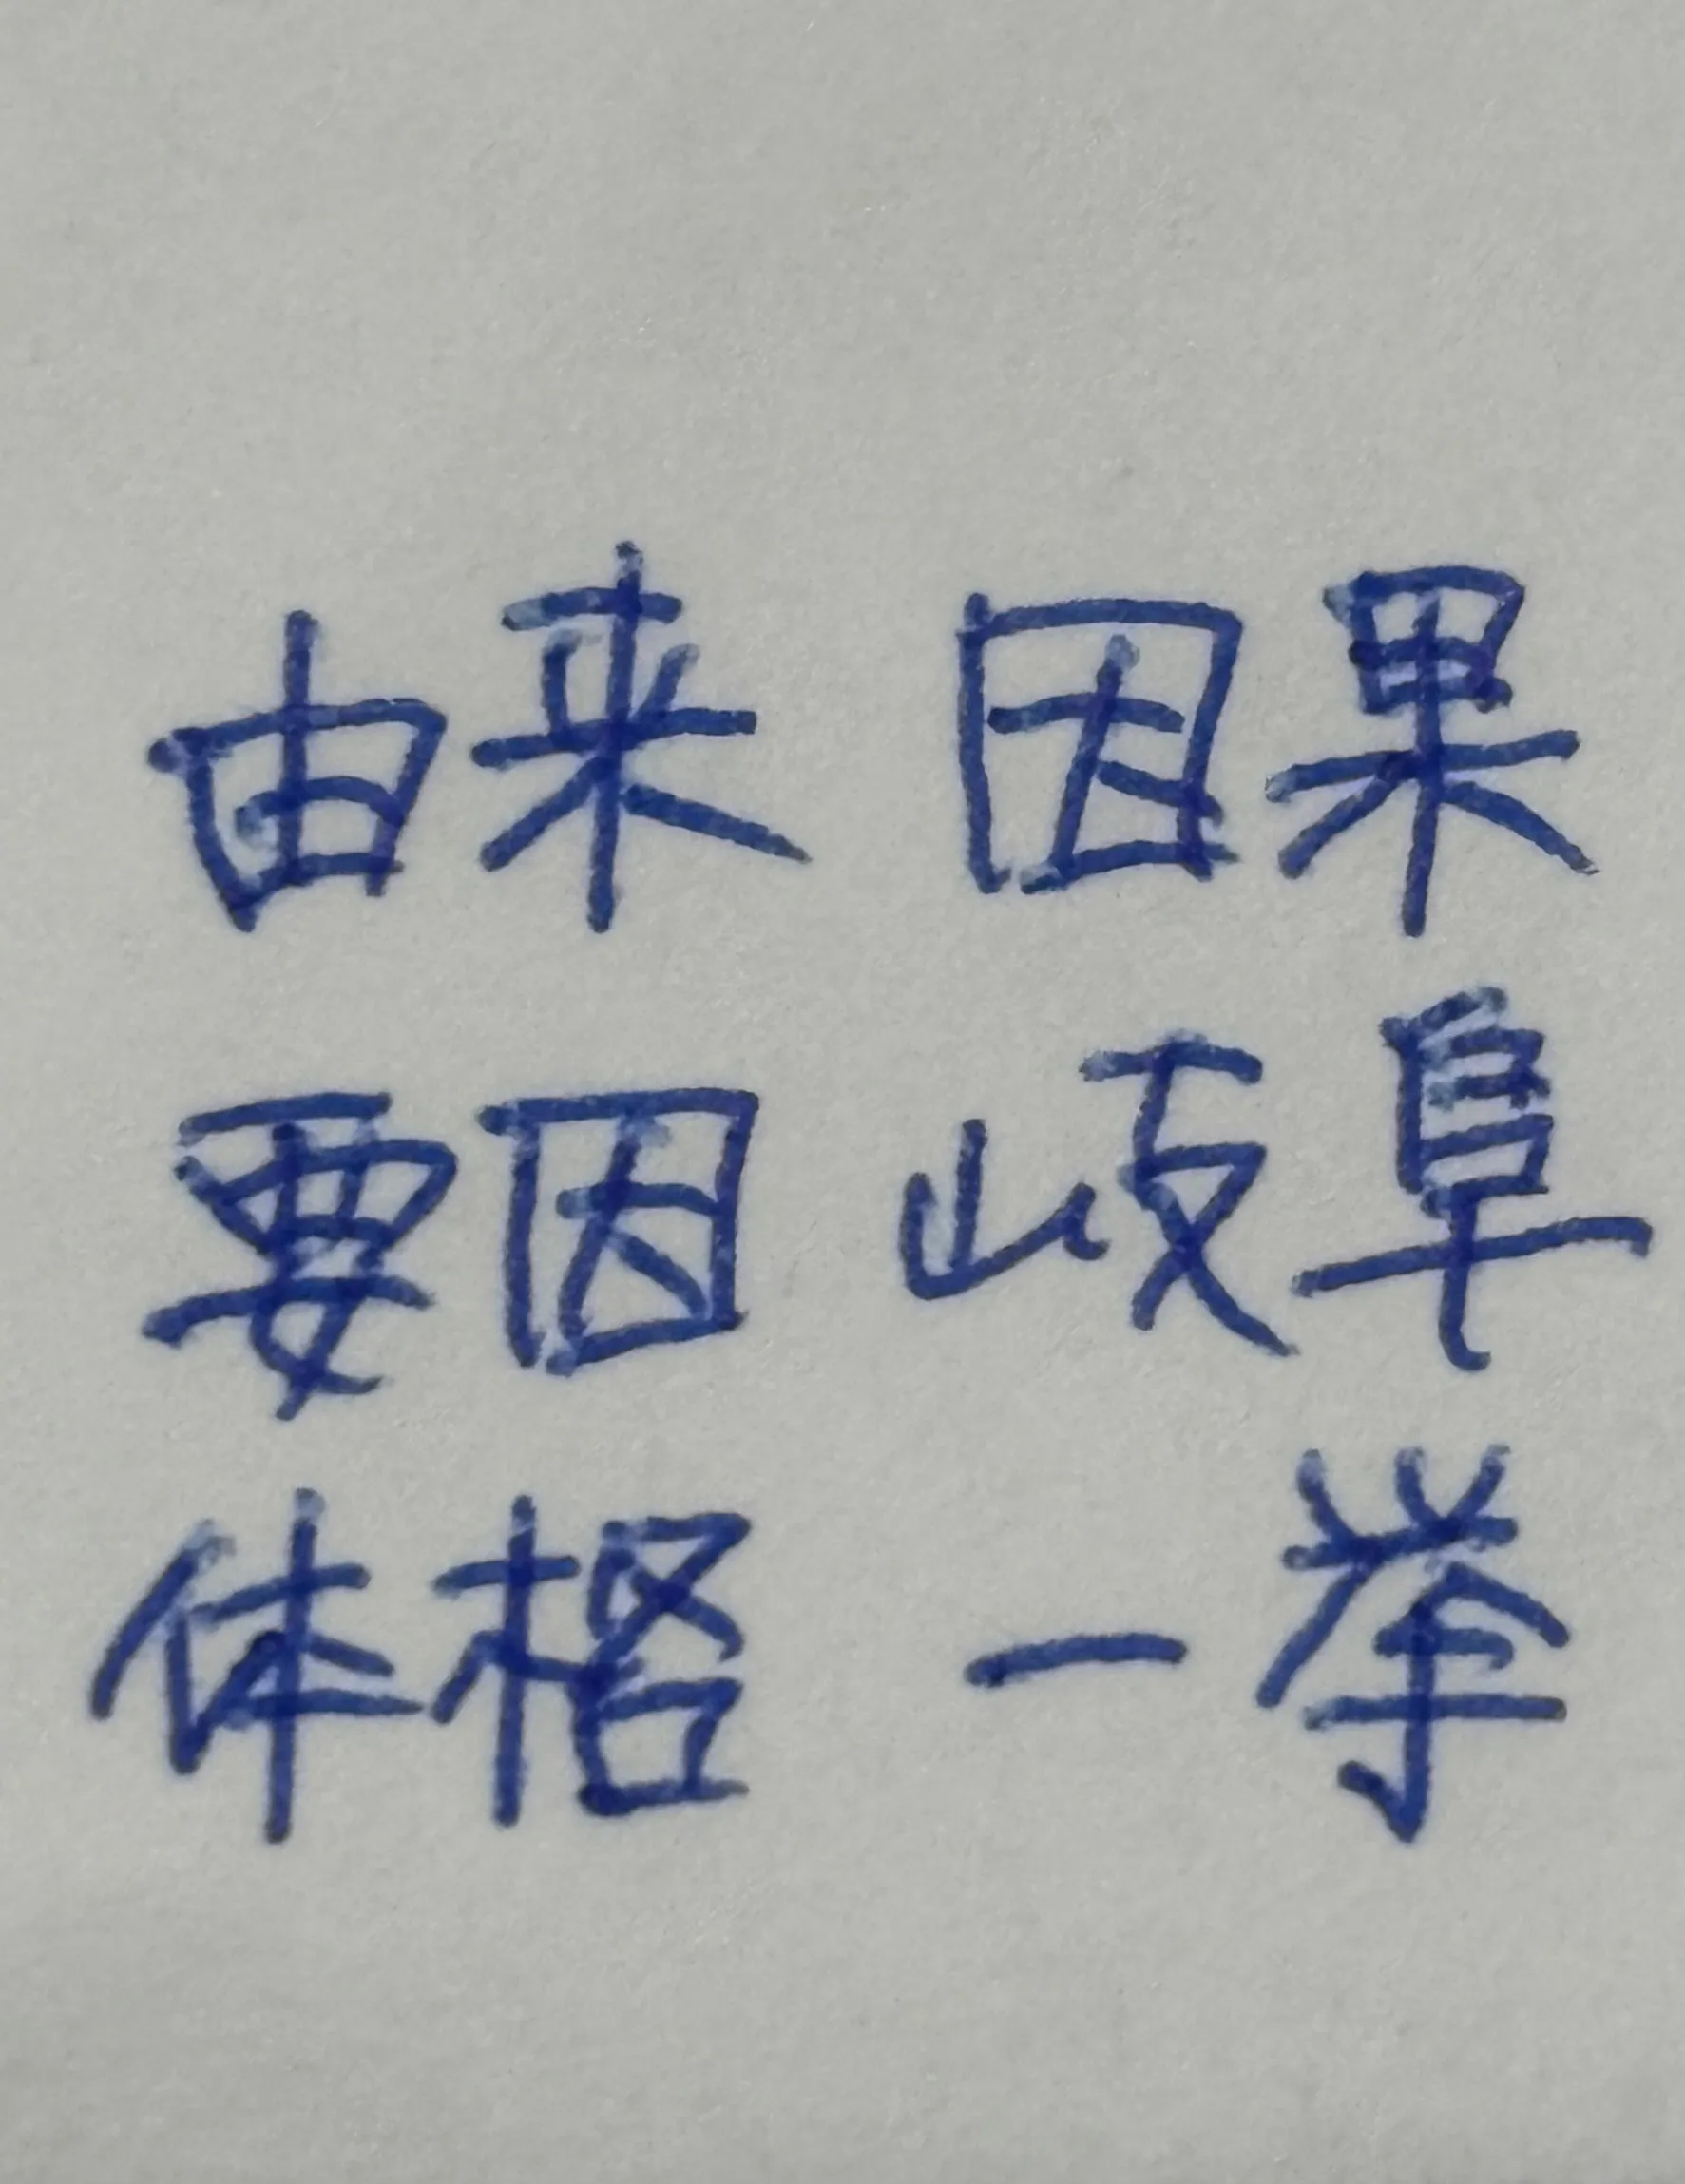 由来 因果
要因 岐阜
体格 一挙